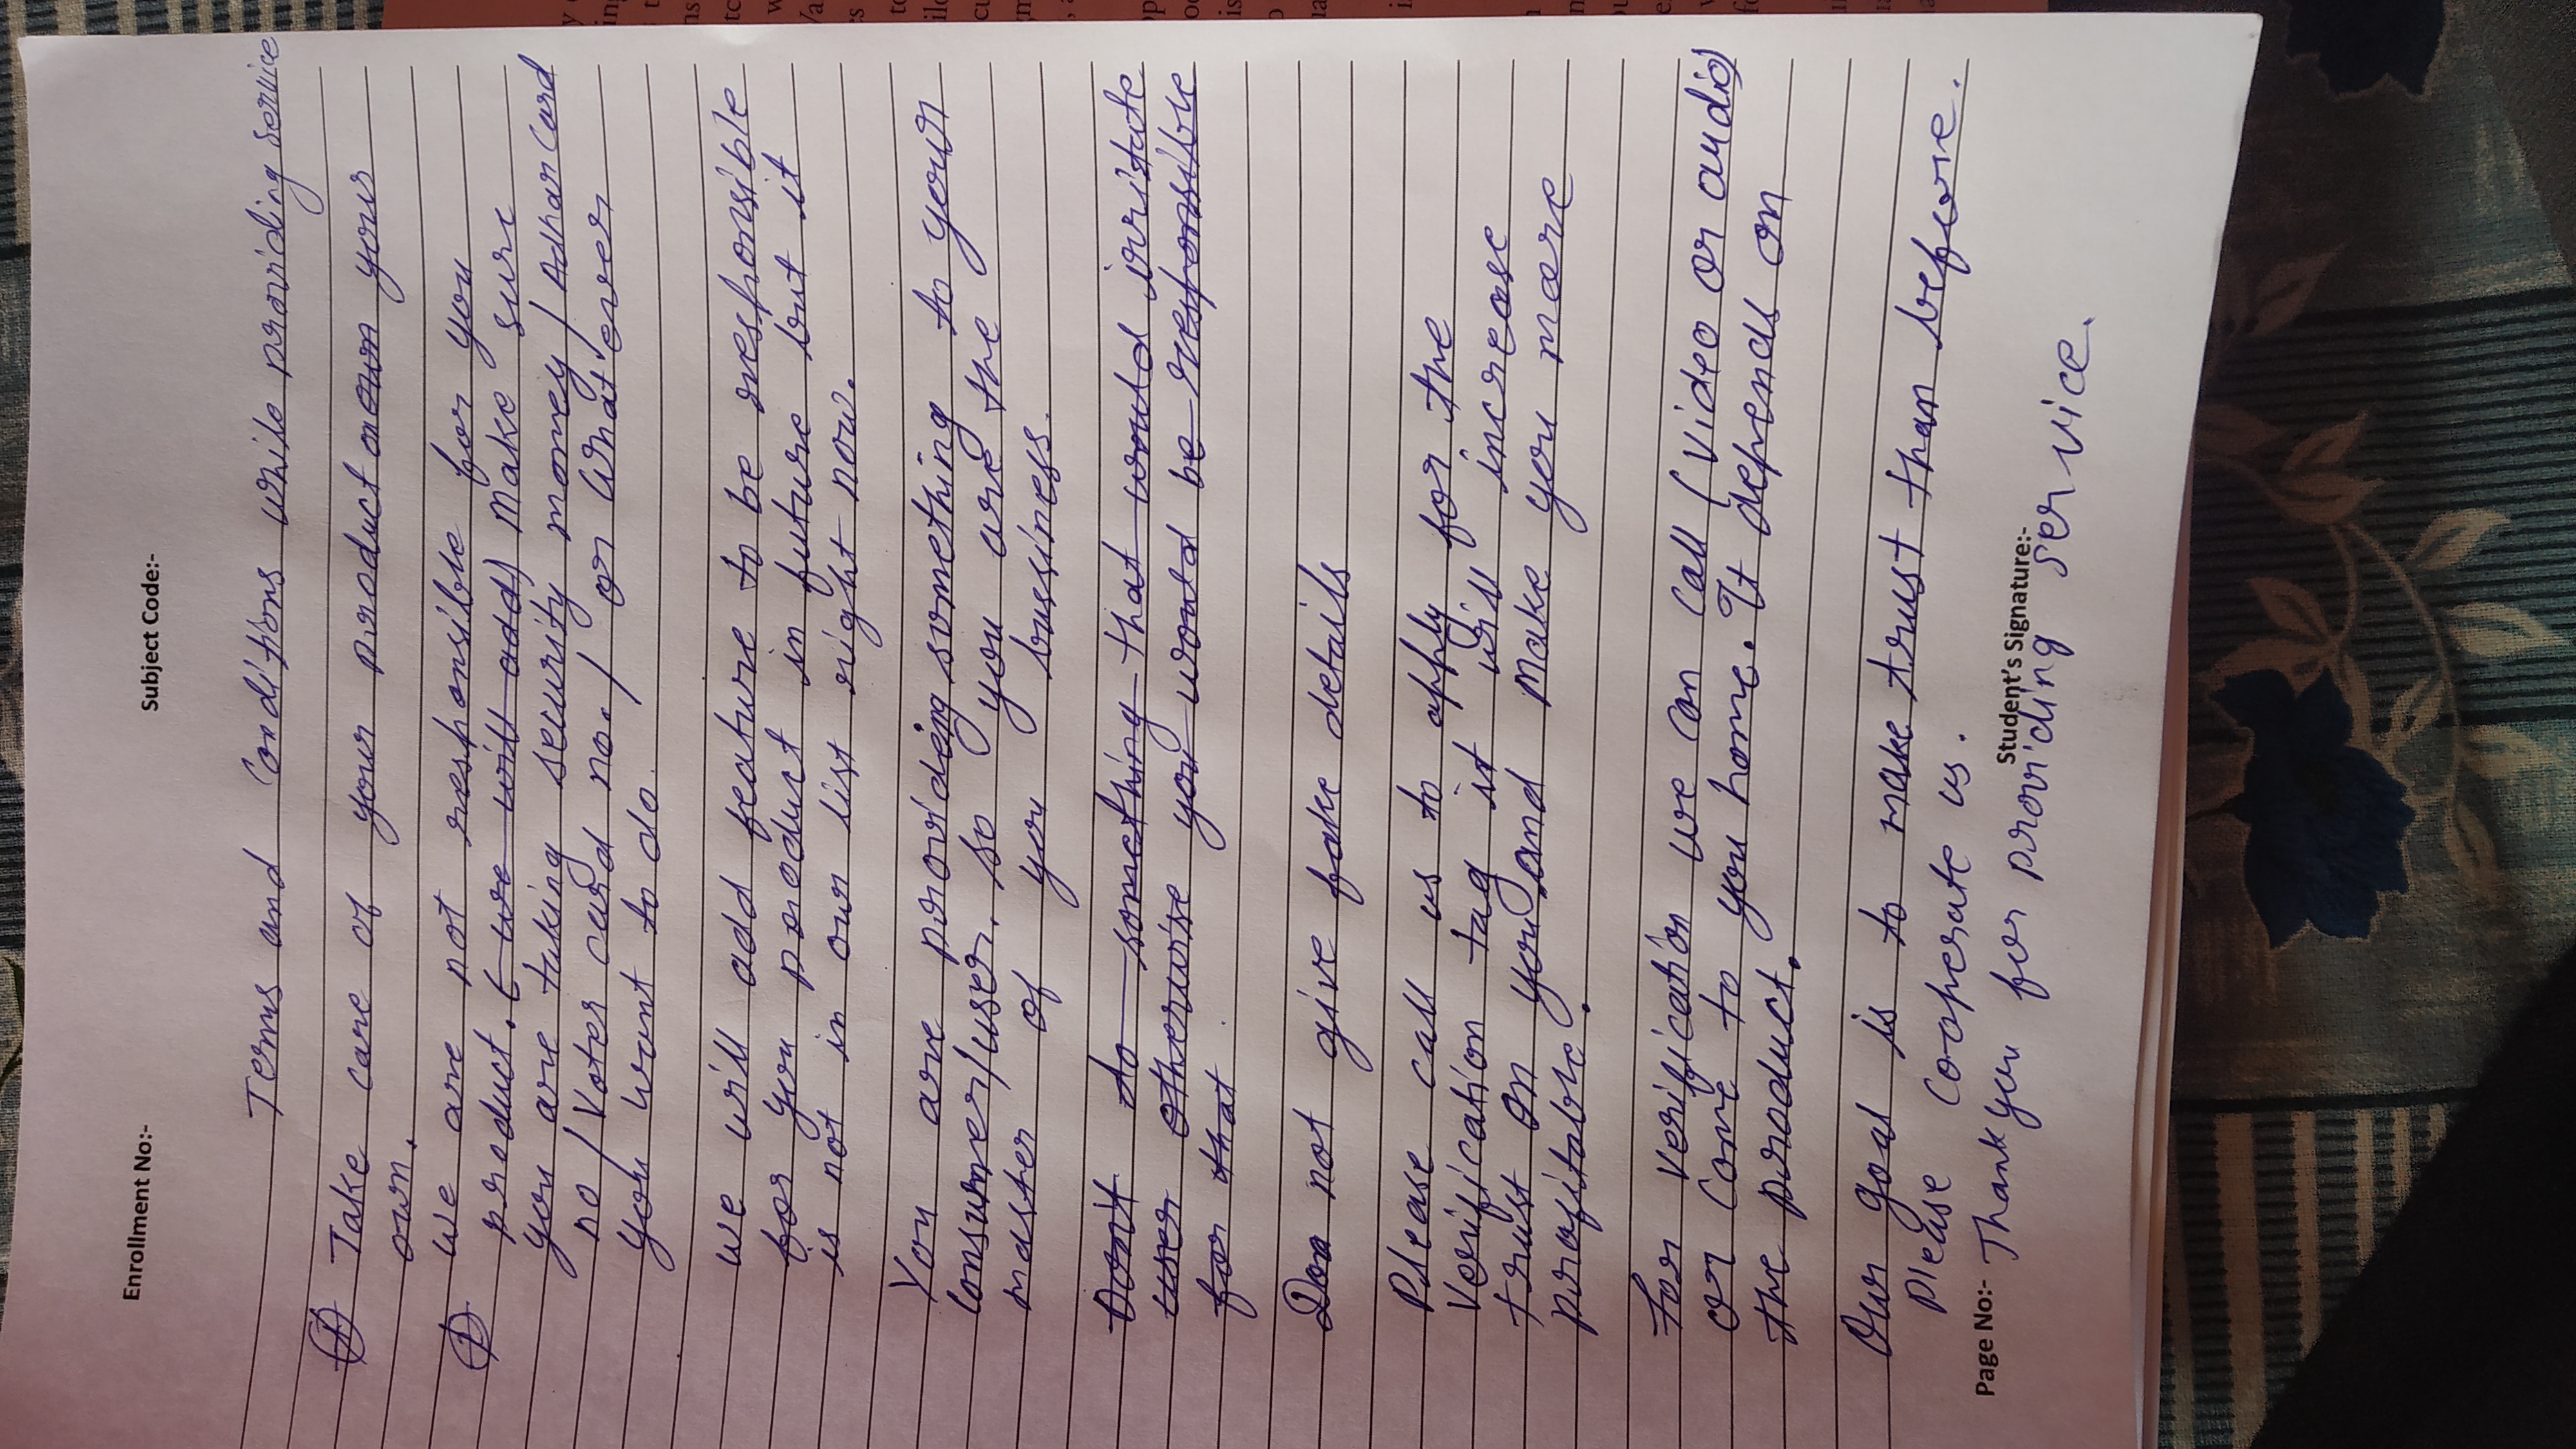 Enrollment No:-
Subject Code:-
Terms and Conditions while providing service
Take care of your product on own your
own.
We are not responsible for you
product. (we will add) Make sure
you are taking security money / Adhar Card
no / Voter card no. / or What ever
you want to do.
we will add feature to be responsible
for you product in future but it
is not in our list right now.
You are providing something to your
consumer/user. so you are the
master of you bussiness.
Don't do something that would irritate
user otherwise you would be responsible
for that
not give fake details
Please call us to apply for the
Verification tag it will increase
trust on you and make you more
profitable.
For verification we can call (video or audio)
or come to you home. It depends on
the product.
Our goal is to make trust than before.
Please cooperate us.
Page No:-
Thank you for providing service.
Student's Signature:-